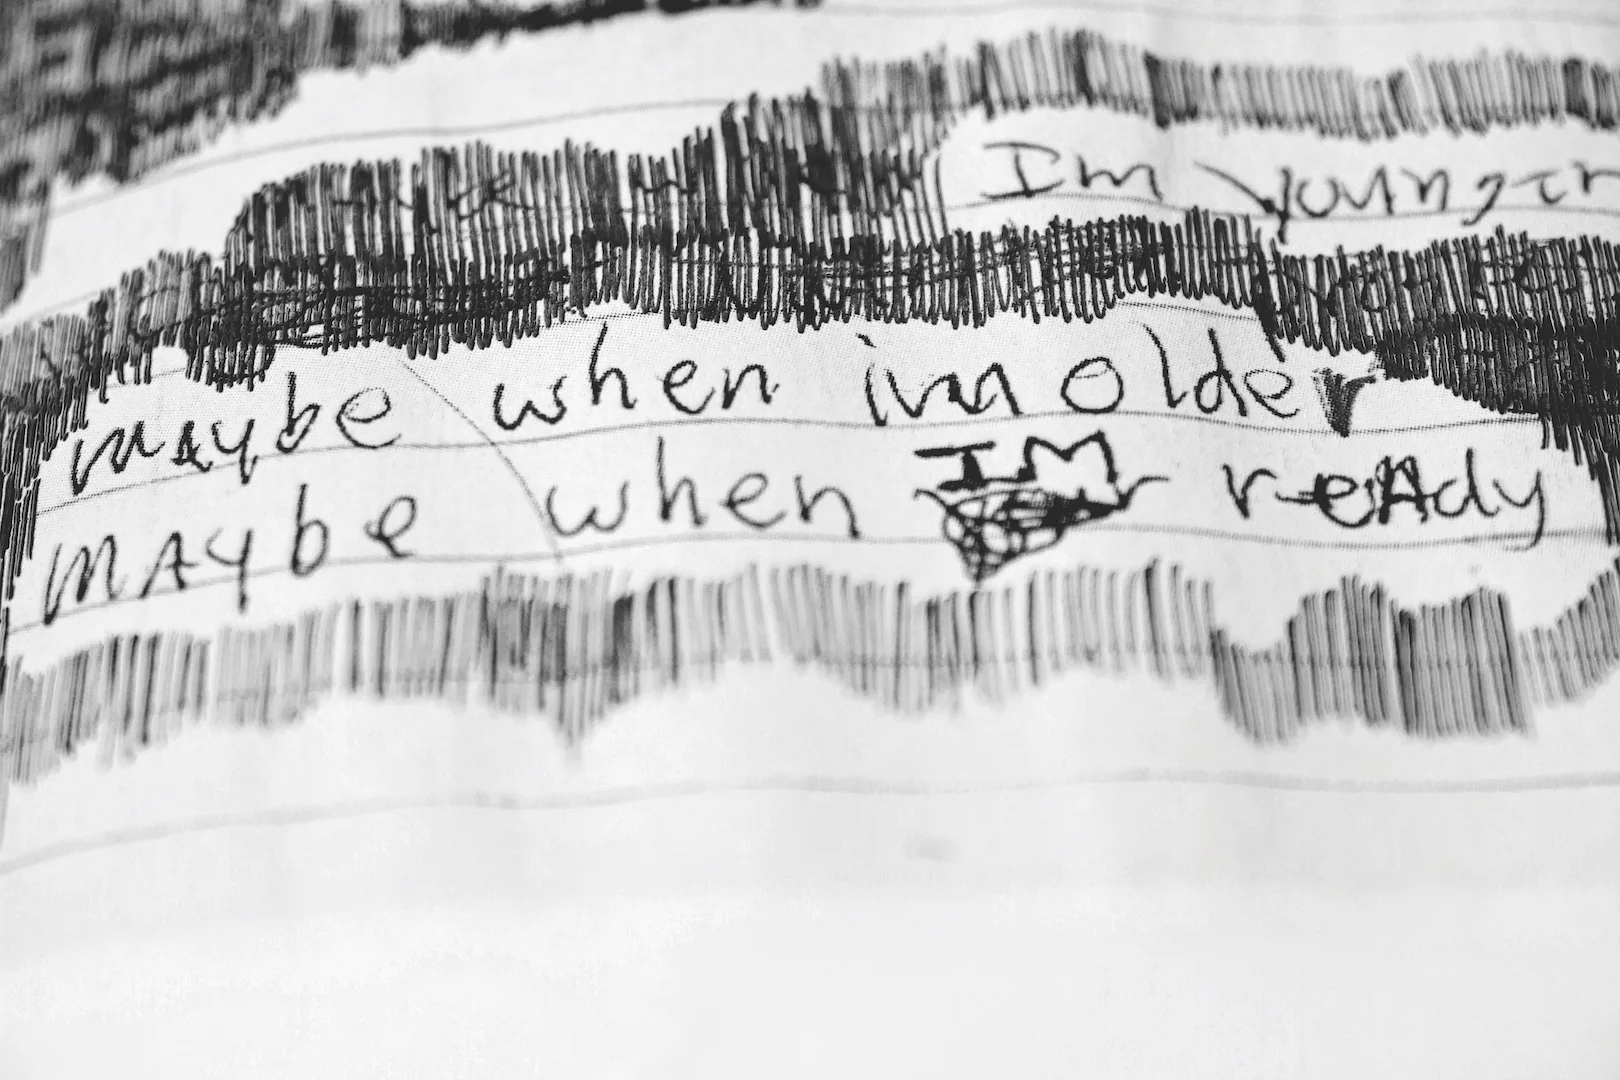 Im younger
maybe when im older
mAybe when IM reAdy